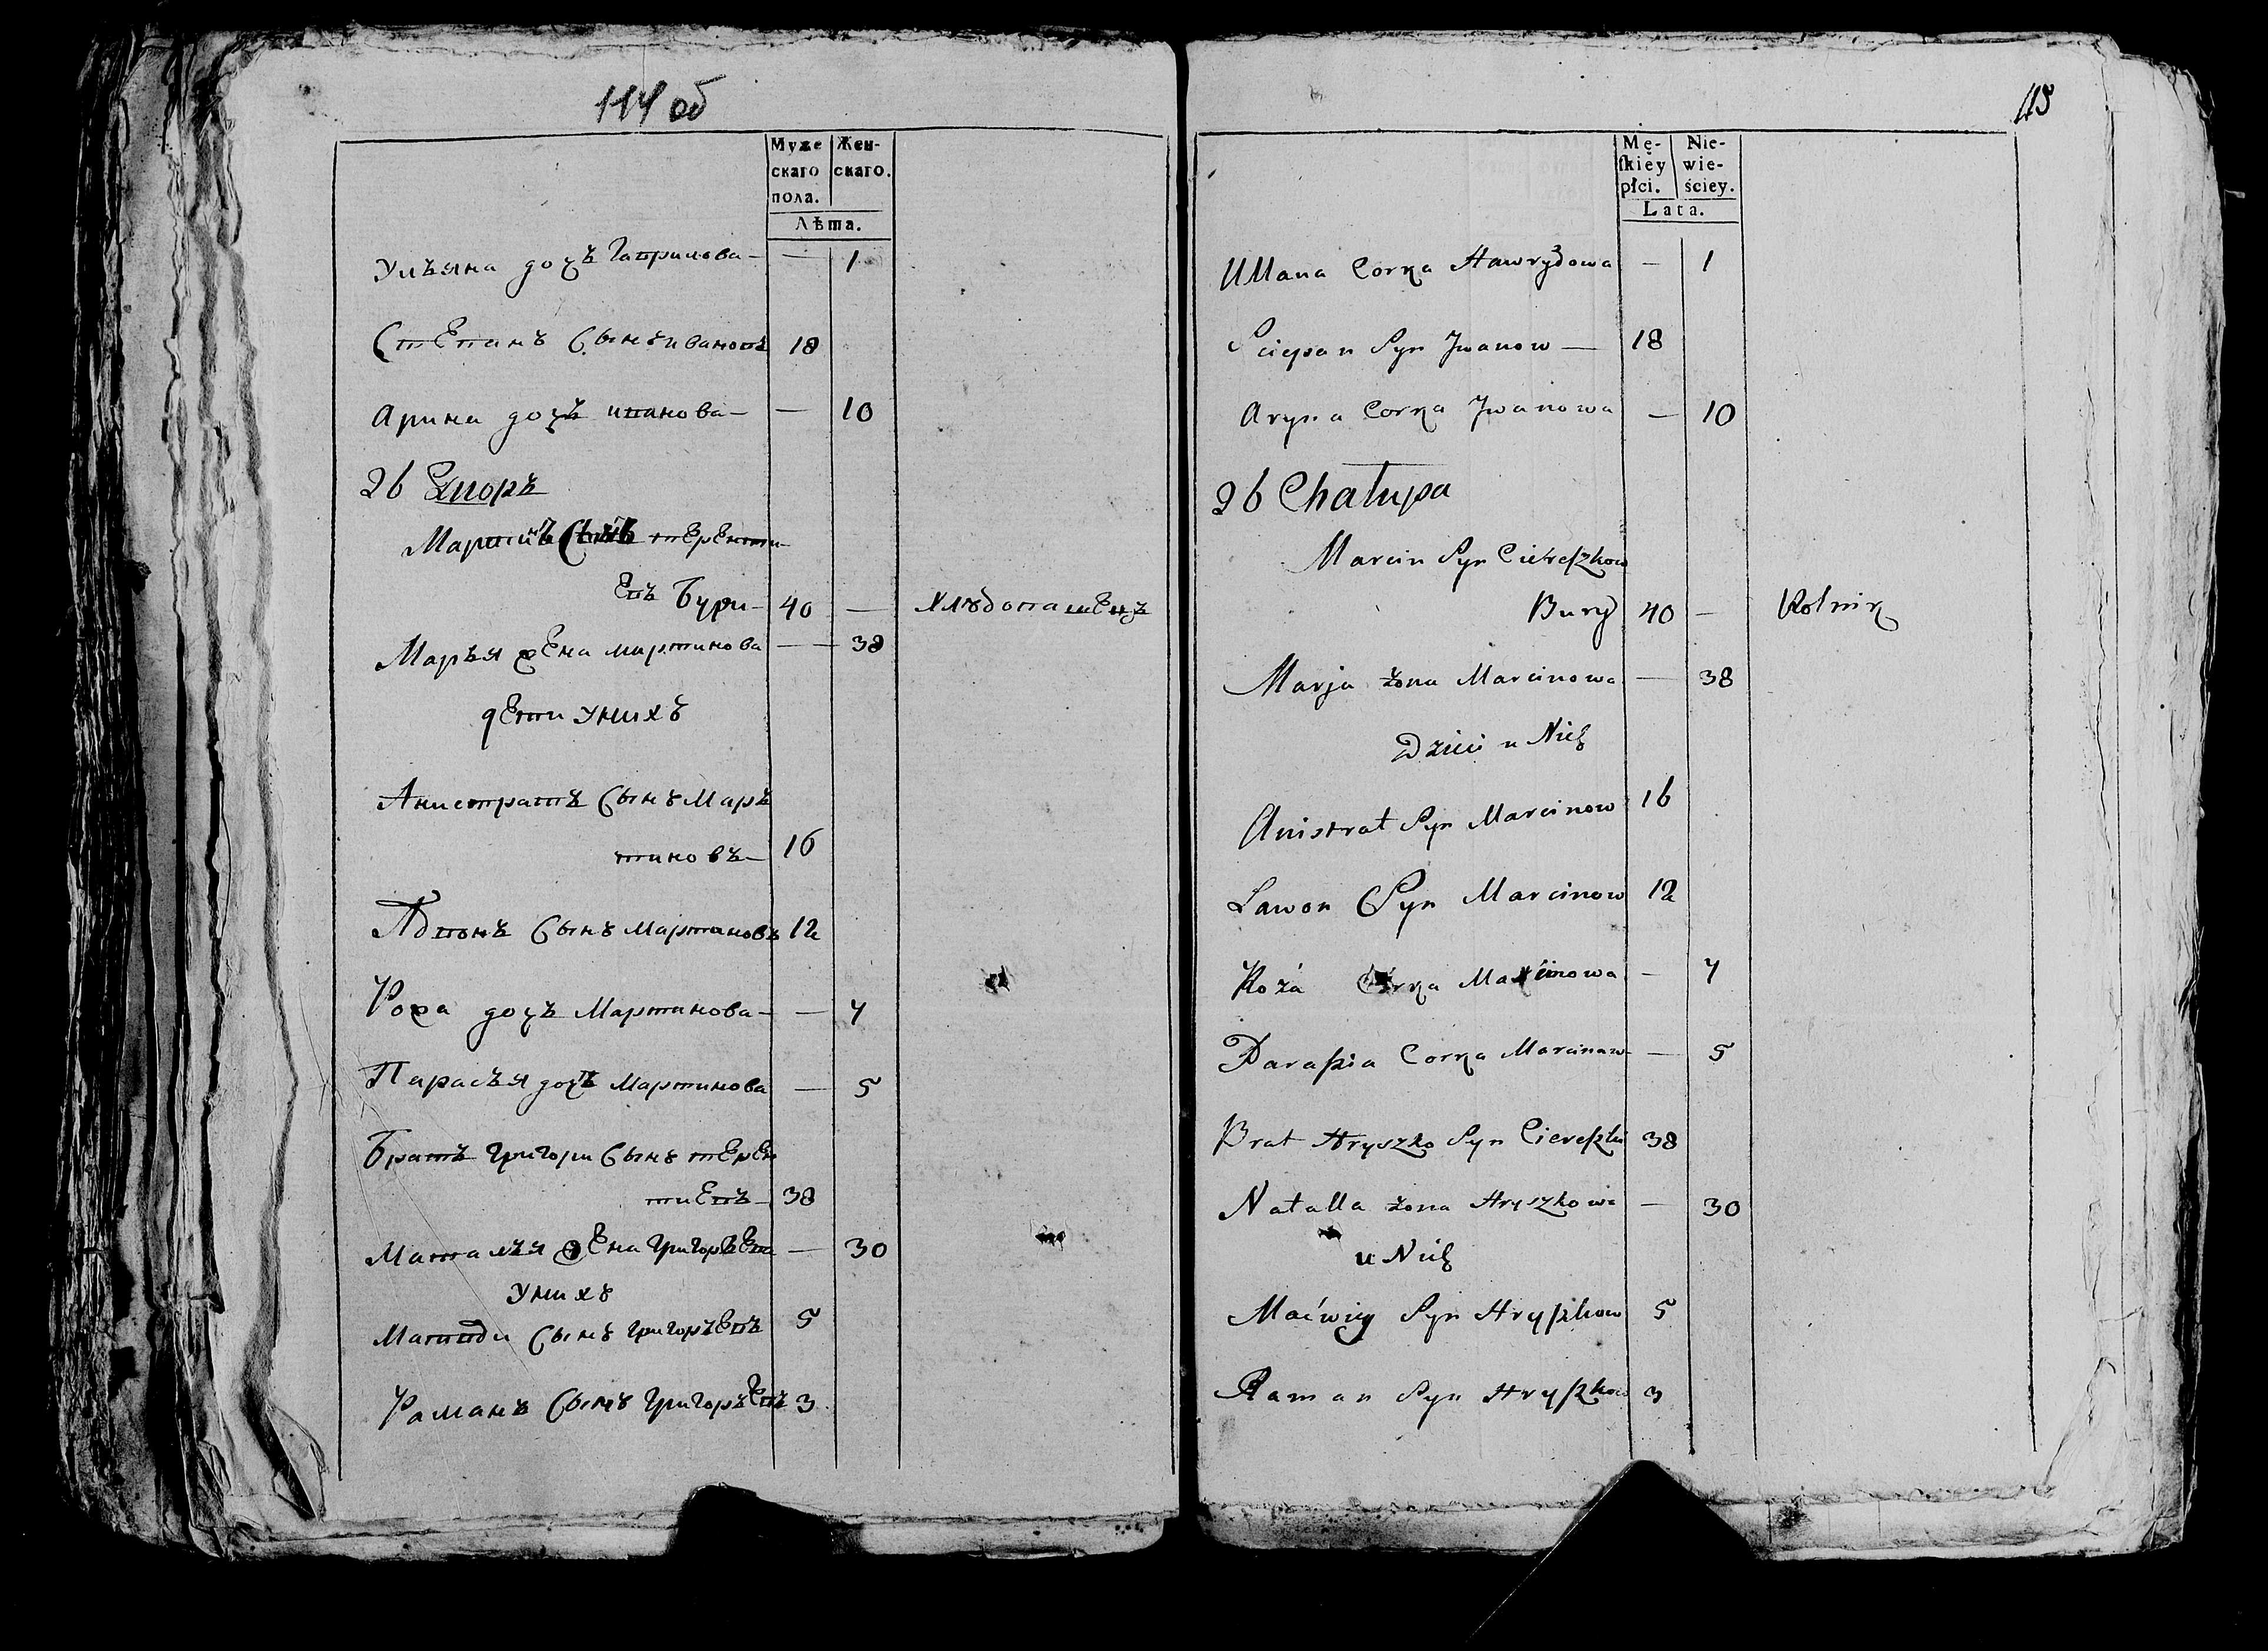 114 об
Муже
скаго
пола.
Жен-
скаго.
Лѣта.
Ульяна дочъ Гаврилова — — 1
Степанъ Сынъ ивановъ 18
Арина дочъ иванова — — 10
26 Дворъ
Мартинъ Сынъ теренти
евъ Бури — 40 — Хлѣбопашецъ
Маръя жена мартинова — — 38
дети унихъ
Анистратъ Сынъ Маръ
тиновъ — 16
Сынъ Мартиновъ 12
Рожа дочъ Мартинова — — 7
Парасъя дочъ Мартинова — 5
братъ григори Сынъ терен
тиевъ — 38
Наталъя жена григоръева — 30
унихъ
Сынъ григоръевъ 5
Раманъ Сынъ григоръевъ 3
115
Mę-
ſkiéy
płci.
Nie-
wie-
ściey.
Lata.
Ullana Corka Hawryłowa — 1
Sciepan Syn Jwanow — 18
Aryna Corka Jwanowa — 10
26 Chałupa
Marcin SynCiereſzkow
Bury 40 — Rolnik
Marja żona Marcinowa — 38
Dzieci u Nich
Anistrat Syn Marcinow 16
Lawon Syn Marcinow 12
Róża Corka Marcinowa — 7
Paraſzia Corka Marcinow — 5
Brat Hryszko Syn Ciereſzki 38
Natalla żona Hryszkowa — 30
u Nich
Maćwiey Syn Hryſzkow 5
Raman Syn Hryſzkow 3